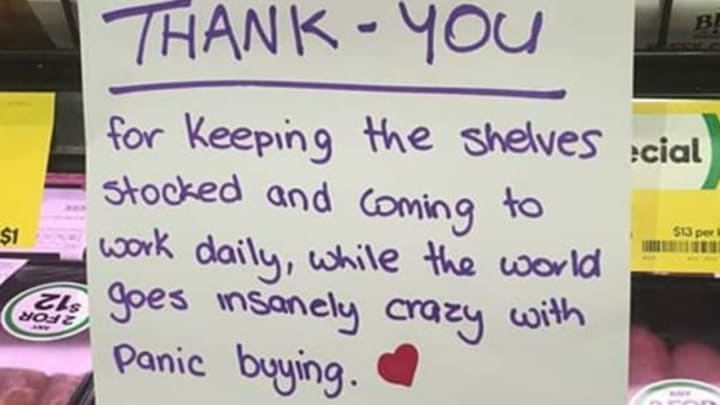 THANK-YOU
for keeping the shelves
stocked and coming to
work daily, while the world
goes insanely crazy with
panic buying.
ecial
$13 per
$1
ANY
2 FOR
$12
ANY
2 FOR